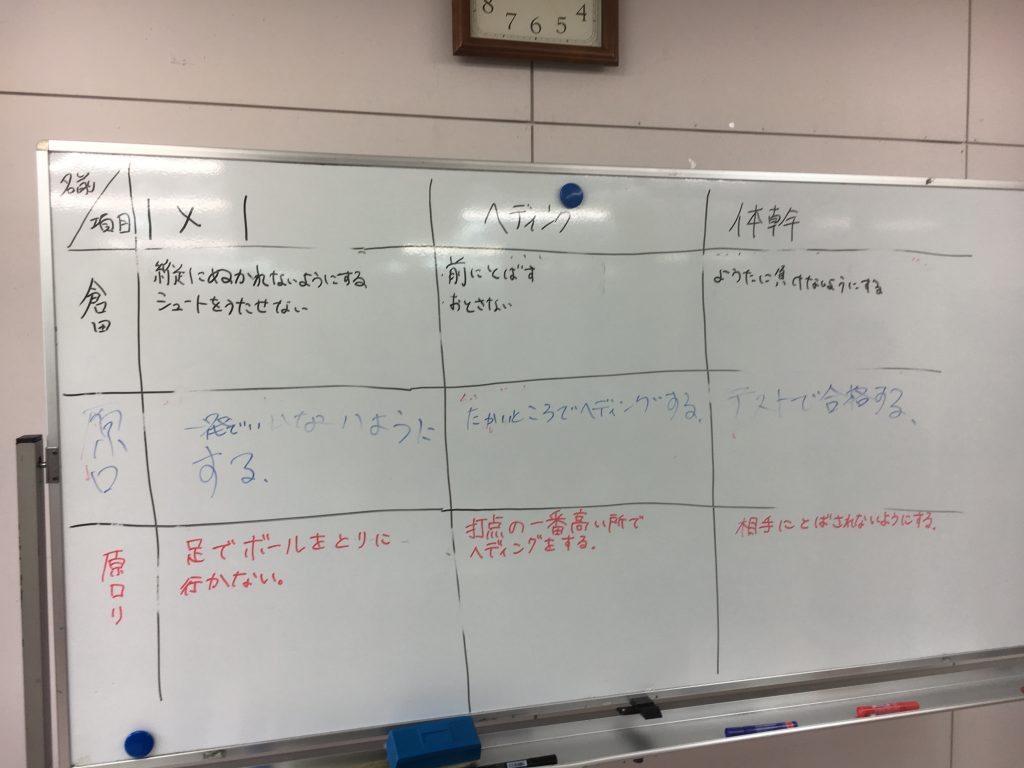 8 7 6 5 4
名前
項目
1 × 1
ヘディング
体幹
倉田
縦にぬかれないようにする
シュートをうたせない
・前にとばす
・おとさない
ようたに負けないようにする
原口
一発でいかないように
する.
たかいところでヘディングする.
テストで合格する.
原口リ
足でボールをとりに
行かない。
打点の一番高い所で
ヘディングをする.
相手にとばされないようにする.